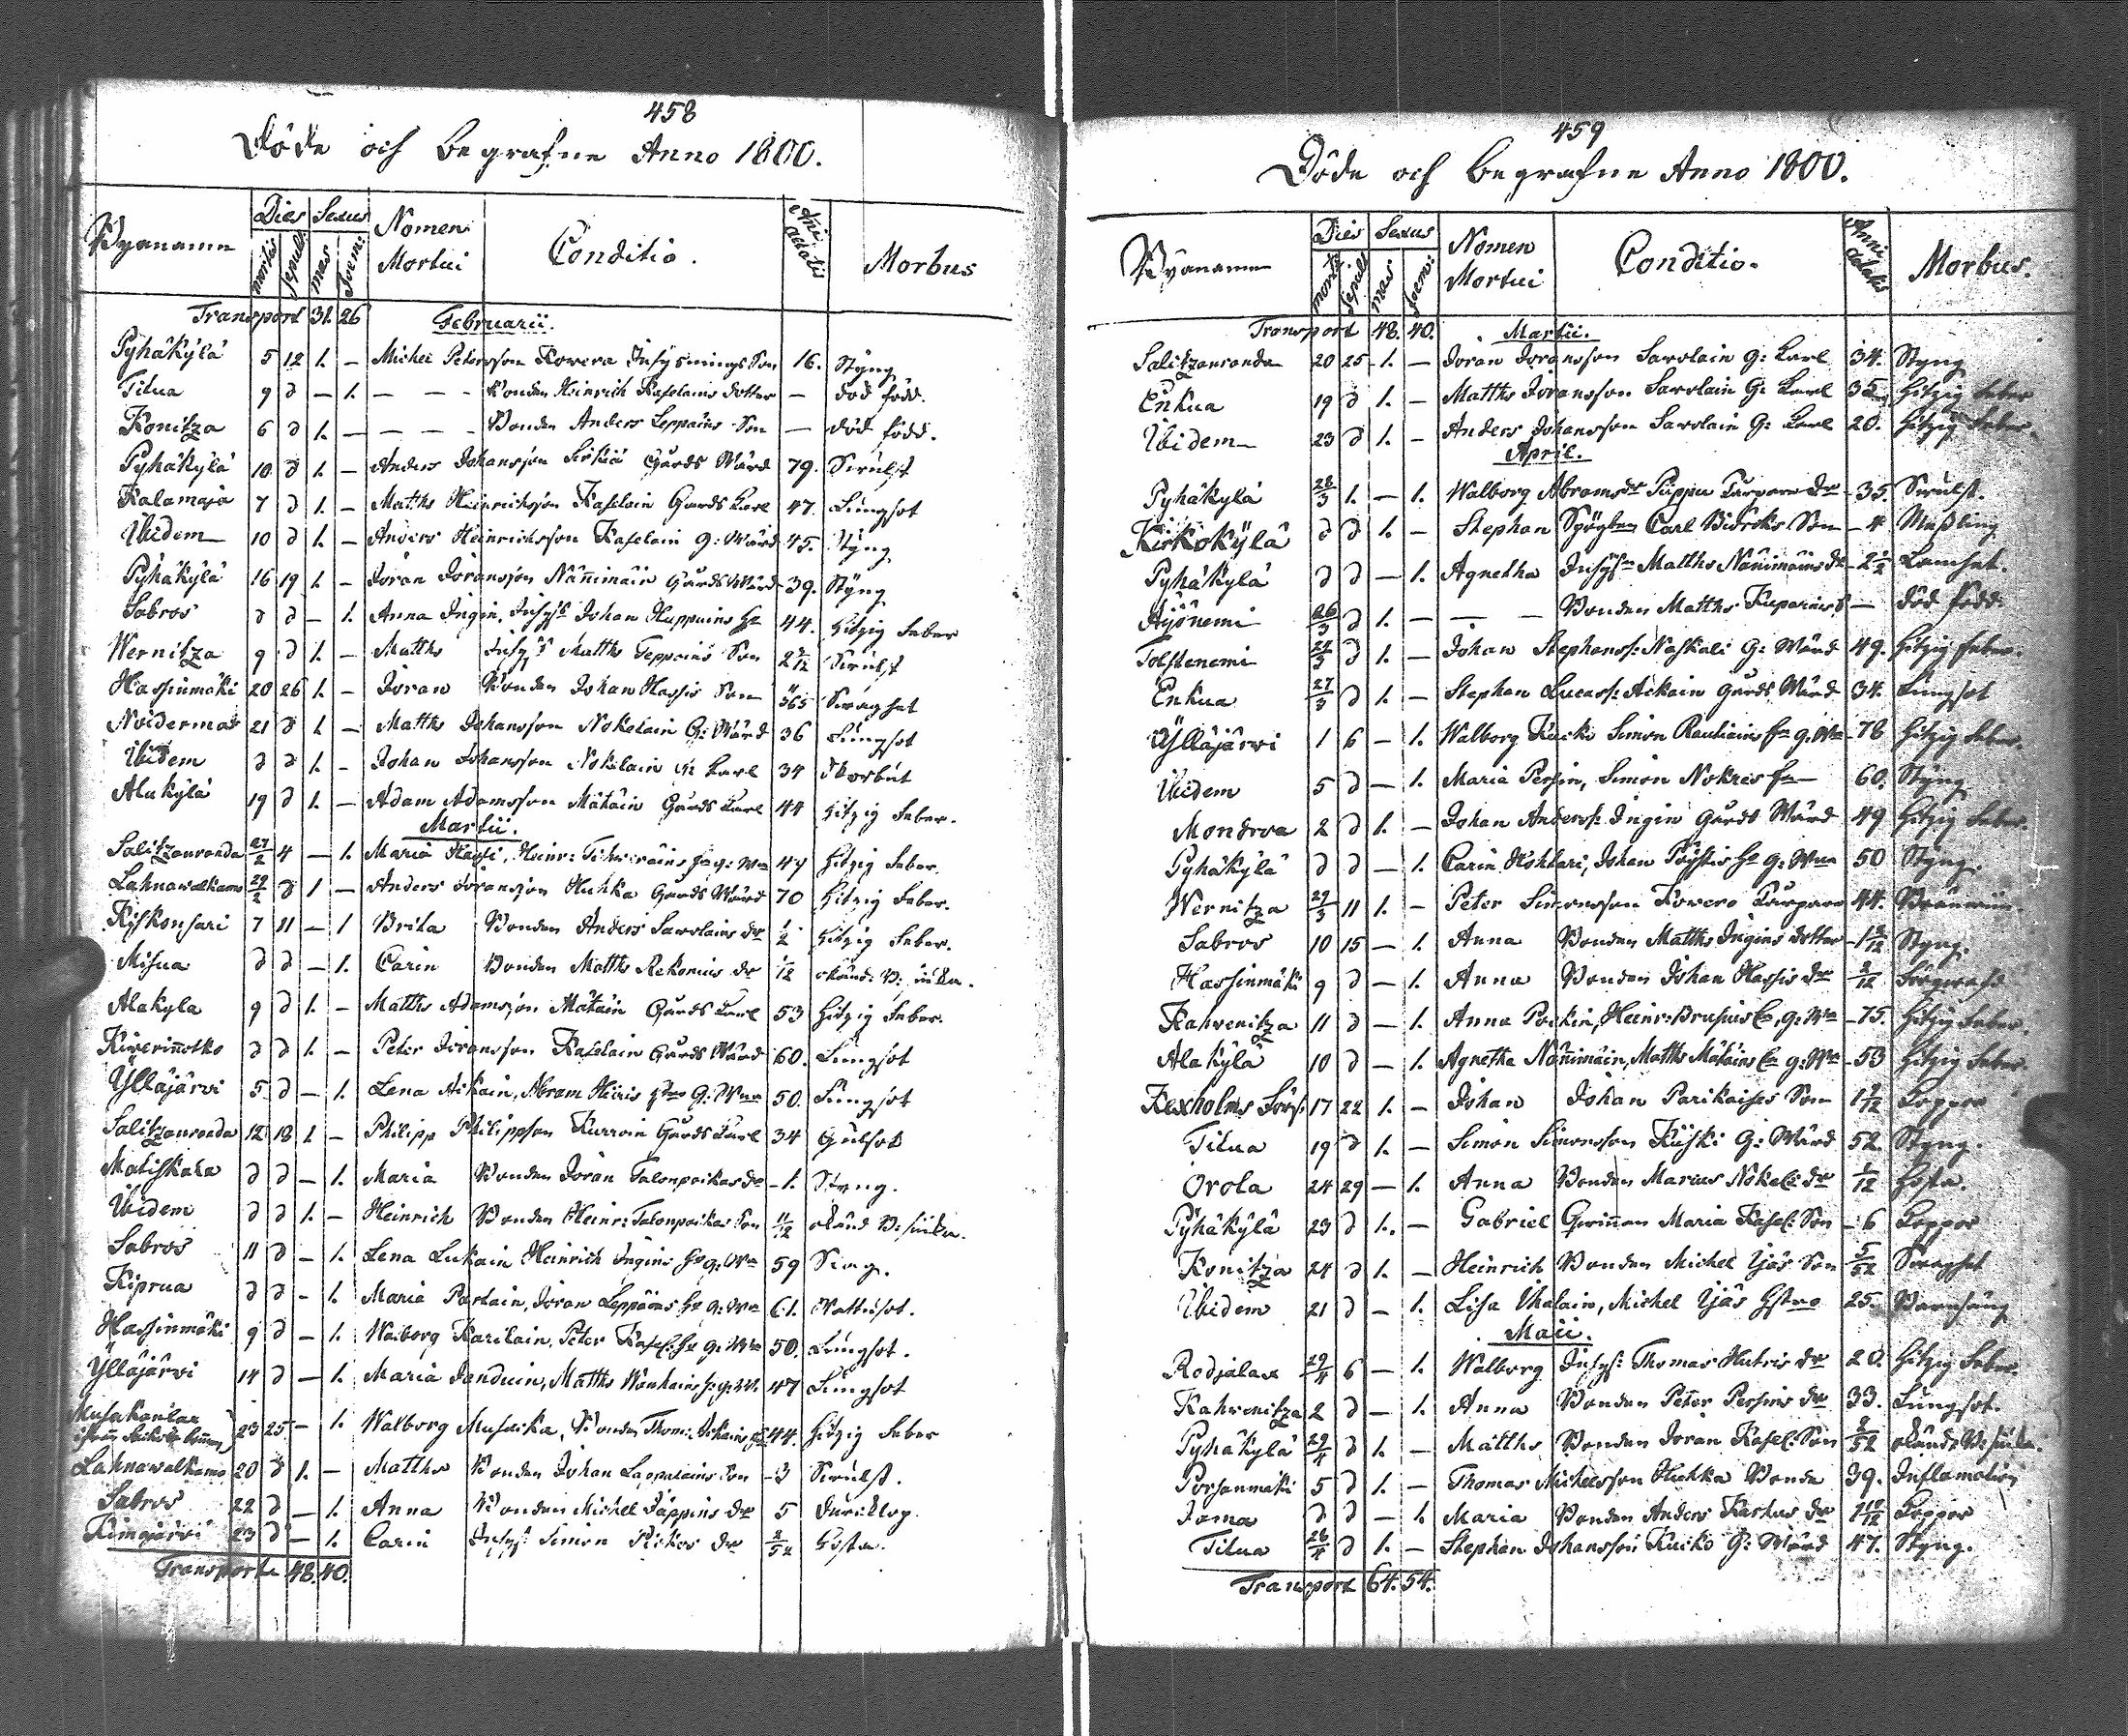 458
Döde och begrafne Anno 1800.
Bynamn Dies Sexus Nomen Mortui Conditio. Anni ætatis Morbus
mortis sepult: mas foem:
Transport 31. 26 Februarii.
Pyhäkylä 5 12 1. — Michel Petersson Kowera Inhysmings Son 16. Styng
Tilua 9 d — 1. — — — Bonden Heinrich Kaselains dotter — död född.
Konitza 6 d 1. — — — — Bonden Anders Leppäins Son — död född.
Pyhäkylä 10 d 1. — Anders Johansson Gårds Wärd 79. Swulst
Kalamaja 7 d 1. — Matths Heinrichsson Kaselain Gårds Karl 47. Lungsot
Ibidem 10 d 1. — Anders Heinrichsson Kaselain G: Wärd 45. Styng
Pyhäkylä 16 19 1. — Jöran Jöransson Nänimäin Gårds Wärd 39. Styng
Sabros d d — 1. Anna Ingin, Inhys: Johan Huppuins H: 44. Hitzig feber
Wernitza 9 d 1. — Matths Inhys: Matths Teppoins Son 2 /12 Swulst
Hassinmäki 20 26 1. — Jöran Bonden Johan Hassis Son /365 Swaghet
Noidermaa 21 d 1. — Matths Johansson Nokelain G: Wärd 36 Lungsot
Ibidem d d 1. — Johan Johansson Nokelain G: Karl 34 Skorbut
Alakylä 19 d 1. — Adam Adamsson Mätäin Gårds Karl 44 Hitzig feber.
Martii.
Salitzanranda 27/2 4 — 1. Maria Hassi, Heinr: g: Wa 47 Hitzig feber.
Lahnawalkama 29/2 d 1 — Anders Jöransson Huhka Gårds Wärd 70 Hitzig feber.
Kiskonsari 7 11 — 1 Brita Bonden Anders Sawolains dr 1/2 Hitzig feber.
Misua d d — 1. Carin Bonden Matths Rekonius dr 1/12 okänd: B:
Alakyla 9 d 1. — Matths Adamsson Mätäin Gårds Karl 53 Hitzig feber.
Kiwerinotko d d 1. — Peter Jöransson Kaselain Gårds Wärd 60. Lungsot
Ylläjärvi 5 d — 1. Lena Aikain, Abram Hiiris G: Wna 50. Lungsot
Salitzanranda 12 18 1. — Philipp Philippson Kurwin Gårds Karl 34 Gulsot
Matiskala d d — 1. Maria Bonden Jöran Talonpoikas dr — 1. Styng.
Ibidem d d 1. — Heinrich Bonden Heinr: Talonpoikas Son 11/12 okänd B: siuka.
Sabros 11 d — 1. Lena Lukain Heinrich Ingins H: g: Wa 59
Kiprua d d — 1. Maria Partain, Jöran Leppäins H: g: Wa 61. Wattusot.
Hassinmäki 9 d — 1. Walborg Karilain, Peter Kasel: H: g: Wa 50. Lungsot.
Ylläjärvi 14 d — 1. Maria Janduin, Matths Wanhains H: g: W. 47 Lungsot
Musakanlax 23 25 — 1. Walborg Musaika, Bonden Thom: Aikains 44. Hitzig feber
Lahnawalkama 20 d 1. — Matths Bonden Johan Lappalains Son — 3 Swulst.
Sabros 22 d — 1. Anna Bonden Michel Jäppins dr 5 Durklop
Kimajärvi 23 d — 1. Carin Inhys: Simon dr 2/52 Hosta.
Transport 48. 40.
459
Döde och begrafne Anno 1800.
Bynamn Dies Sexus Nomen Mortui Conditio. Anni ætatis Morbus.
mortis sepult mas foem:
Transport 48. 40. Martii.
Salitzanranda 20 25 1. — Jöran Jöransson Sawolain G: Karl 34. Styng
Enkua 19 d 1. — Matths Jöransson Sawolain G: Karl 35 Hitzig feber
Ibidem 23 d 1. — Anders Johansson Sawolain G: Karl 20. Hitzig feber.
April.
Pyhäkylä 28/3 1. — 1. Walborg Abramsdr dr — 35. Swulst.
Kirkokylä d d 1. — Stephan Carl Son — 4 Mäßling
Pyhäkylä d d — 1. Agnetha Inhys: Matths Nänimäins dr — 2 1/2 Lamhet.
Äyönemi 26/3 d 1. — — — Bonden Matths Kuparins S — död född.
Tolstenemi 24/3 d 1. — Johan Stephanss: Naskali G: Wärd 49. Hitzig feber.
Enkua 27/3 d 1. — Stephan Lucass: Aikain Gårds Wärd 34. Lungsot
Ylläjärvi 1 6 — 1. Walborg Kucko Simon Rautiains H: g: Wa — 78 Hitzig feber.
Ibidem 5 d — 1. Maria Persin, Simon Nokres H: 60. Styng
Mondroa 2 d 1. — Johan Anderss: Ingin Gårds Wärd 49 Hitzig feber.
Pyhäkylä d d — 1. Carin Kohkari, Johan H: g: Wna 50 Styng.
Wernitza 29/3 11 1. — Peter Simonsson Kowero 44. Bränwin.
Sabros 10 15 — 1. Anna Bonden Matths Ingins dotter — 1 /12 Styng.
Hassinmäki 9 d — 1. Anna Bonden Johan Hassis dr /12
Kahvenitza 11 d — 1. Anna Poikin, Heinr: Brusius Ea, g: Wa — 75. Hitzig feber.
Alakylä 10 d — 1. Agnetha Nänimäin, Matths Mätäins Ea g: Wa — 53 Hitzig feber.
Kexholms Förs: 17 22 1. — Johan Johan Parikaises Son 1 /12 Koppor
Tilua 19 d 1. — Simon Simonsson Kiiski G: Wärd 52. Styng.
Orola 24 29 — 1. Anna Bonden Marcus Nokel: dr 1/12 Hosta.
Pyhäkylä 23 d 1. — Gabriel Qwinnan Maria Kasel: Son — 6 Koppor
Konitza 24 d 1. — Heinrich Bonden Michel Ijäs Son 5/52 Swaghet
Ibidem 21 d — 1. Lisa Ihalain, Michel Ijäs Hstro 25. Barnsäng
Maii.
Rodjalax 29/4 6 — 1. Walborg Inhys: Thomas Hutris dr 20. Hitzig feber.
Kahvenitza 2 d — 1. Anna Bonden Peter Persins dr 33. Lungsot.
Pyhäkylä 29/4 d 1. — Matths Bonden Jöran Kasel: Son /52 okänd: B: siuka.
Porsanmäki 5 d 1. — Thomas Michelsson Huhka Bonde 39. Inflamation
Jama d d — 1. Maria Bonden Anders Karhus dr 1 10/12 Koppor
Tilua 26/4 d 1. — Stephan Johansson Kucko G: Wärd 47. Styng.
Transport 64. 54.